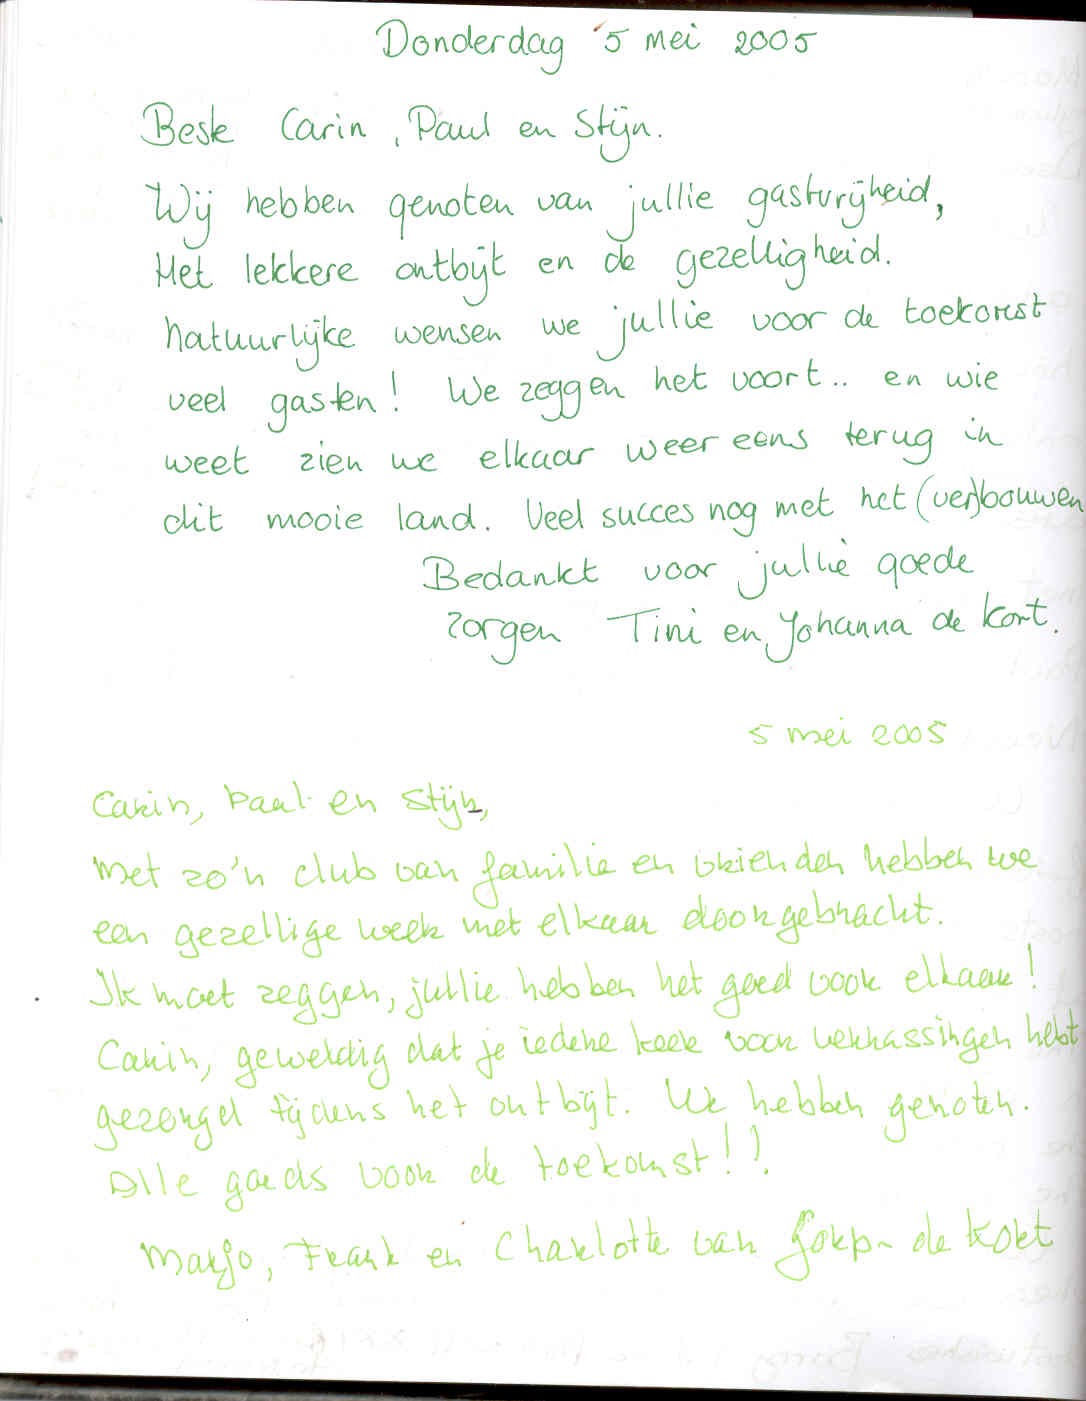 Donderdag 5 mei 2005
Beste Carin, Paul en Stijn.
Wij hebben genoten van jullie gastvrijheid,
Het lekkere ontbijt en de gezelligheid.
Natuurlijke wensen we jullie voor de toekomst
veel gasten! We zeggen het voort.. en wie
weet zien we elkaar weer eens terug in
dit mooie land. Veel succes nog met het (ver)bouwen
Bedankt voor jullie goede
zorgen Tini en Johanna de Kort.
5 mei 2005
Carin, Paul en Stijn,
Met zo'n club van familie en vrienden hebben we
een gezellige week met elkaar doorgebracht.
Ik moet zeggen, jullie hebben het goed voor elkaar!
Carin, geweldig dat je iedere keer voor verrassingen hebt
gezorgd tijdens het ontbijt. We hebben genoten.
Alle goeds voor de toekomst!!
Marjo, Frank en Charlotte van - de Kort